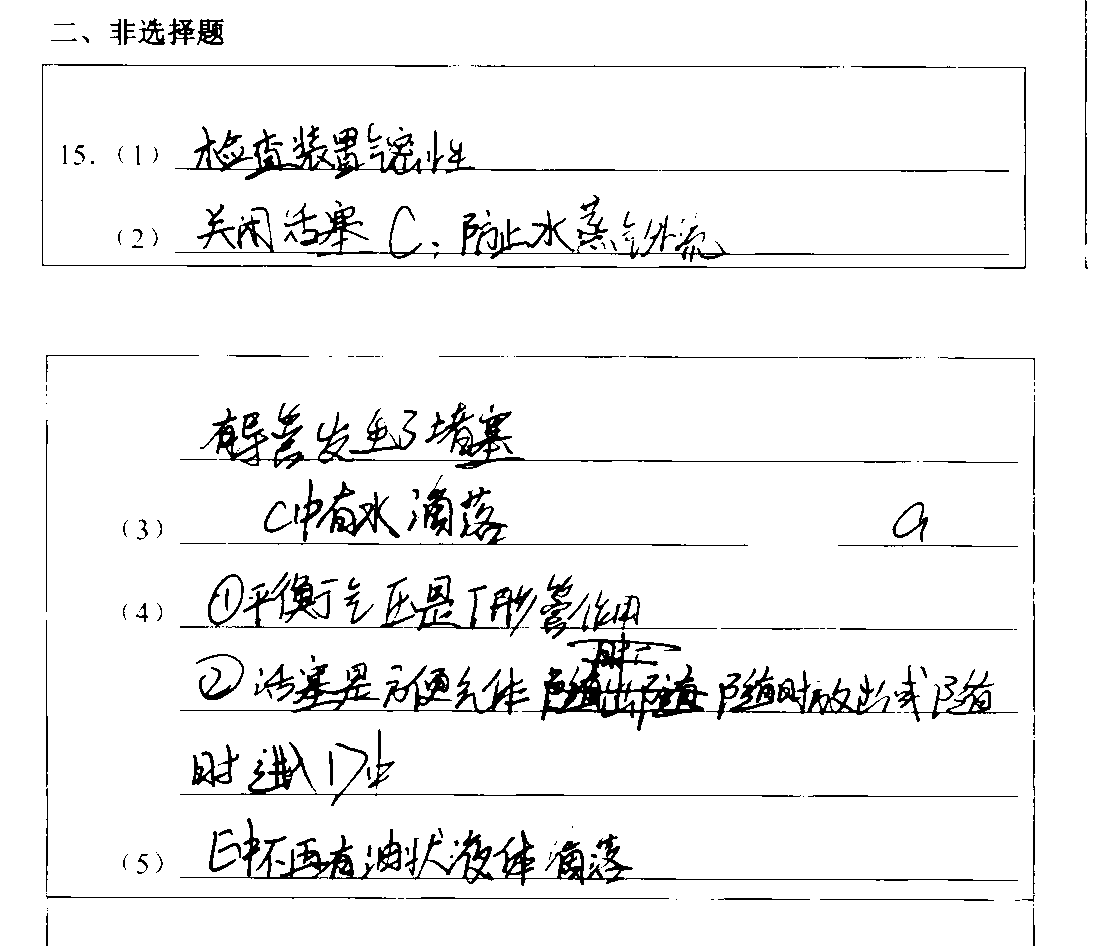 二、非选择题
15.（1） 检查装置气密性
（2） 关闭活塞 C; 防止水蒸气外流
有导管发生了堵塞
（3） C中有水滴落 a
（4） ①平衡气压是T形管作用
②活塞是方便气体 随时放出或随
时进入D中
（5） E中不再有油状液体滴落